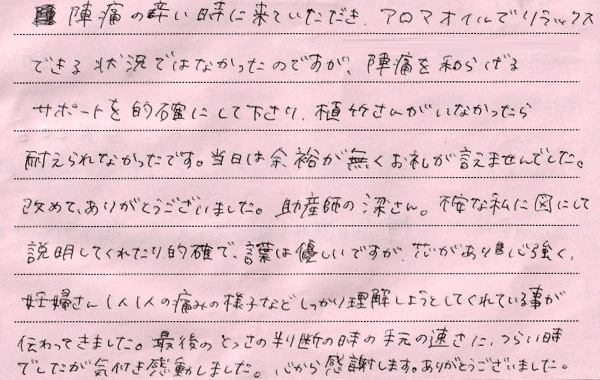 陣痛の辛い時に来ていただき、アロマオイルでリラックス
できる状況ではなかったのですが、陣痛を和らげる
サポートを的確にして下さり、植竹さんがいなかったら
耐えられなかったです。当日は余裕が無くお礼が言えませんでした。
改めて、ありがとうございました。助産師の深さん。不安な私に図にして
説明してくれたり、的確で、言葉は優しいですが、芯があり心強く、
妊婦さん1人1人の痛みの様子などしっかり理解しようとしてくれている事が
伝わってきました。最後のとっさの判断の時の手元の速さに、つらい時
でしたが気付き感動しました。心から感謝します。ありがとうございました。